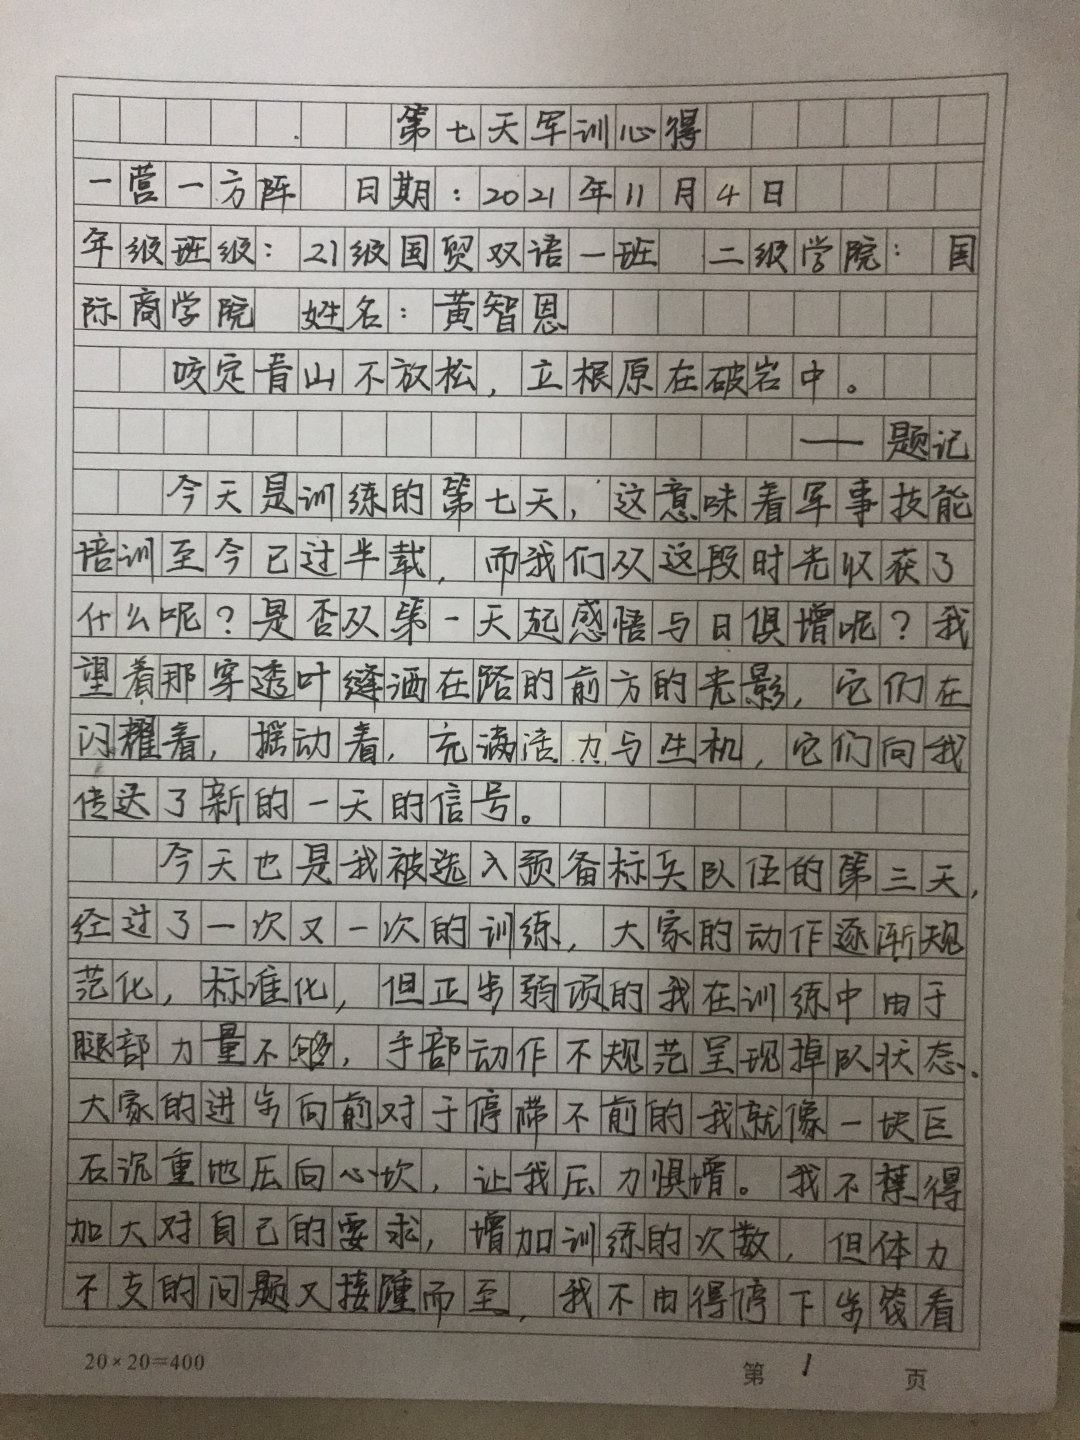 第七天军训心得
一营一方阵 日期：2021年11月4日
年级班级：21级国贸双语一班 二级学院：国
际商学院 姓名：黄智恩
咬定青山不放松，立根原在破岩中。
——题记
今天是训练的第七天，这意味着军事技能
培训至今已过半载，而我们从这段时光收获了
什么呢？是否从第一天起感悟与日俱增呢？我
望着那穿透叶缝洒在路的前方的光影，它们在
闪耀着，摇动着，充满活力与生机，它们向我
传达了新的一天的信号。
今天也是我被选入预备标兵队伍的第三天，
经过了一次又一次的训练，大家的动作逐渐规
范化，标准化，但正步弱项的我在训练中由于
腿部力量不够，手部动作不规范呈现掉队状态。
大家的进步向前对于停滞不前的我就像一块巨
石沉重地压向心坎，让我压力惧增。我不禁得
加大对自己的要求，增加训练的次数，但体力
不支的问题又接踵而至，我不由得停下步伐看
20×20=400
第 1 页